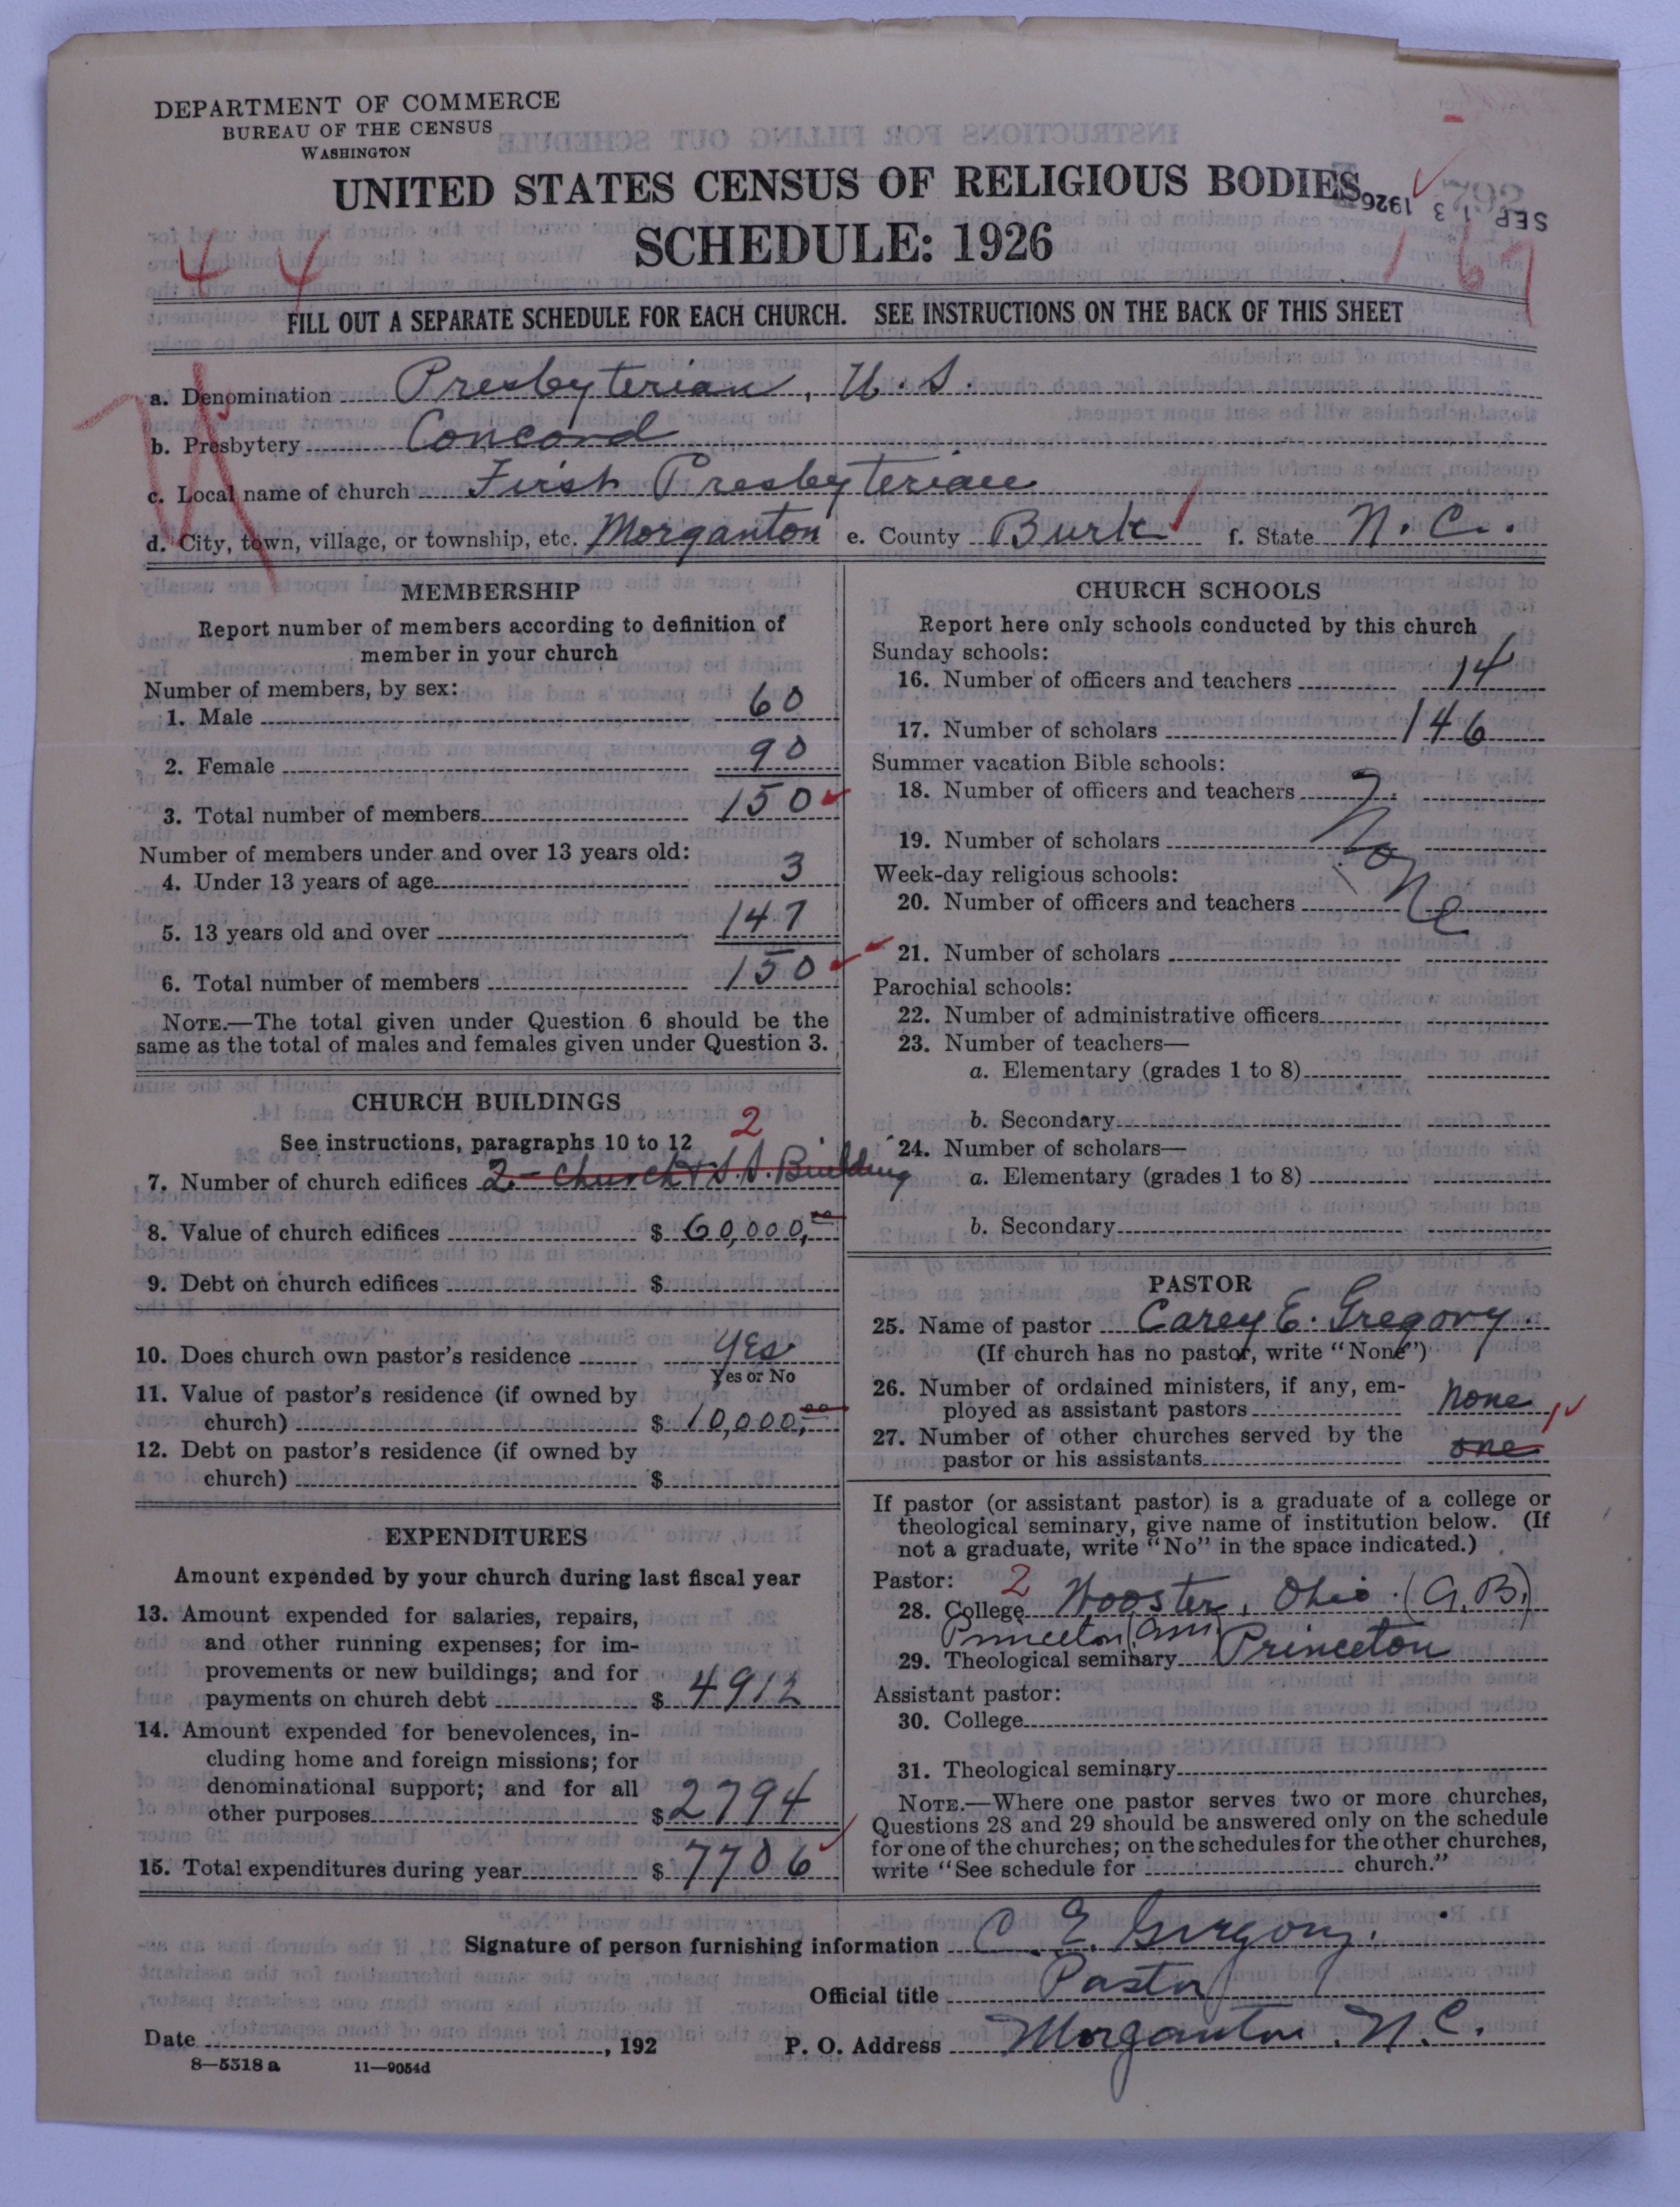 DEPARTMENT OF COMMERCE
BUREAU OF THE CENSUS
WASHINGTON
UNITED STATES CENSUS OF RELIGIOUS BODIES
SEP 13 1926
SCHEDULE: 1926
4 4
167
FILL OUT A SEPARATE SCHEDULE FOR EACH CHURCH. SEE INSTRUCTIONS ON THE BACK OF THIS SHEET
a. Denomination Presbyterian, U.S.
b. Presbytery Concord
c. Local name of church First Presbyterian
d. City, town, village, or township, etc. Morganton e. County Burk f. State N. C.
MEMBERSHIP
Report number of members according to definition of
member in your church
Number of members, by sex:
1. Male 60
2. Female 90
3. Total number of members 150
Number of members under and over 13 years old:
4. Under 13 years of age 3
5. 13 years old and over 147
6. Total number of members 150
NOTE.—The total given under Question 6 should be the
same as the total of males and females given under Question 3.
CHURCH BUILDINGS
See instructions, paragraphs 10 to 12 2
7. Number of church edifices 2 - Church & S.S. Building
8. Value of church edifices $ 60,000,00
9. Debt on church edifices $
10. Does church own pastor's residence Yes
Yes or No
11. Value of pastor's residence (if owned by
church) $ 10,000,00
12. Debt on pastor's residence (if owned by
church) $
EXPENDITURES
Amount expended by your church during last fiscal year
13. Amount expended for salaries, repairs,
and other running expenses; for im-
provements or new buildings; and for
payments on church debt $ 4912
14. Amount expended for benevolences, in-
cluding home and foreign missions; for
denominational support; and for all
other purposes $ 2794
15. Total expenditures during year $ 7706
CHURCH SCHOOLS
Report here only schools conducted by this church
Sunday schools:
16. Number of officers and teachers 14
17. Number of scholars 146
Summer vacation Bible schools:
18. Number of officers and teachers
19. Number of scholars None
Week-day religious schools:
20. Number of officers and teachers
21. Number of scholars
Parochial schools:
22. Number of administrative officers
23. Number of teachers—
a. Elementary (grades 1 to 8)
b. Secondary
24. Number of scholars—
a. Elementary (grades 1 to 8)
b. Secondary
PASTOR
25. Name of pastor Carey E. Gregory.
(If church has no pastor, write "None")
26. Number of ordained ministers, if any, em-
ployed as assistant pastors none
27. Number of other churches served by the
pastor or his assistants one
If pastor (or assistant pastor) is a graduate of a college or
theological seminary, give name of institution below. (If
not a graduate, write "No" in the space indicated.)
Pastor: 2
28. College Wooster, Ohio (A.B.)
Princeton (AM)
29. Theological seminary Princeton
Assistant pastor:
30. College
31. Theological seminary
NOTE.—Where one pastor serves two or more churches,
Questions 28 and 29 should be answered only on the schedule
for one of the churches; on the schedules for the other churches,
write "See schedule for church."
Signature of person furnishing information C. E. Gregory.
Official title Pastor
Date , 192 P. O. Address Morganton, N.C.
8—5318 a 11—9054d